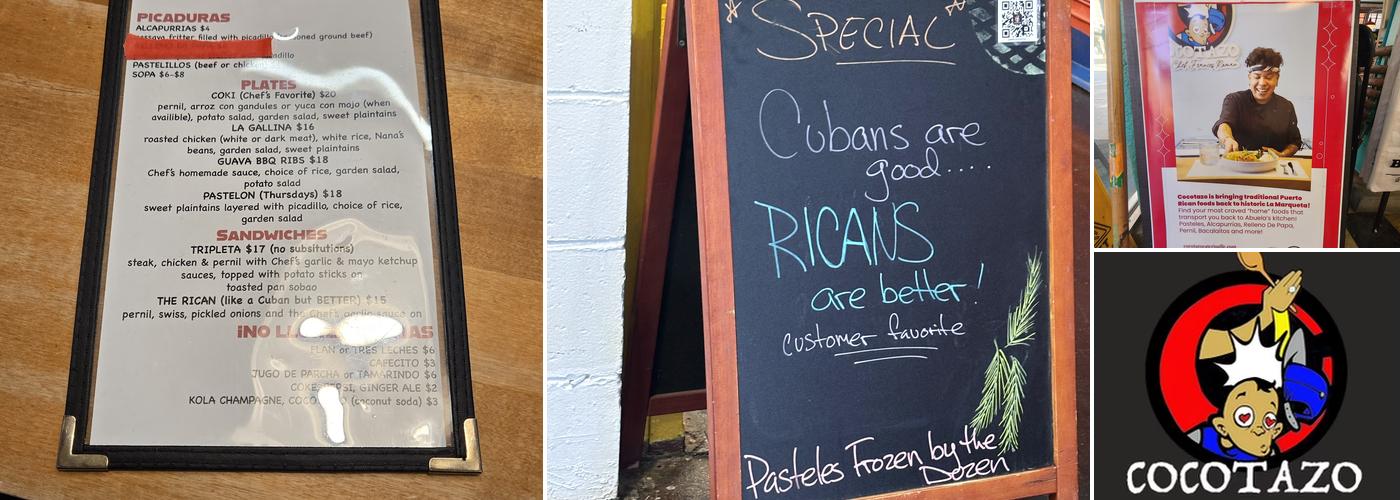 PICADURAS
ALCAPURRIAS $4
cassava fritter filled with picadillo (seasoned ground beef)
PASTELILLOS (beef or chicken)
SOPA $6-$8
PLATES
COKI (Chef's Favorite) $20
pernil, arroz con gandules or yuca con mojo (when
availible), potato salad, garden salad, sweet plaintains
LA GALLINA $16
roasted chicken (white or dark meat), white rice, Nana's
beans, garden salad, sweet plaintains
GUAVA BBQ RIBS $18
Chef's homemade sauce, choice of rice, garden salad,
potato salad
PASTELON (Thursdays) $18
sweet plaintains layered with picadillo, choice of rice,
garden salad
SANDWICHES
TRIPLETA $17 (no subsitutions)
steak, chicken & pernil with Chef's garlic & mayo ketchup
sauces, topped with potato sticks on
toasted pan sobao
THE RICAN (like a Cuban but BETTER) $15
pernil, swiss, pickled onions and the Chef's garlic sauce on
¡NO
FLAN or TRES LECHES $6
CAFECITO $3
JUGO DE PARCHA or TAMARINDO $6
COKE, PEPSI, GINGER ALE $2
KOLA CHAMPAGNE, COCO (coconut soda) $3
*SPECIAL*
Cubans are
good....
RICANS
are better!
customer favorite
Pasteles Frozen by the
Dozen
COCOTAZO
Cocotazo is bringing traditional Puerto
Rican foods back to historic La Marqueta!
Find your most craved "home" foods that
transport you back to Abuela's kitchen!
Pasteles, Alcapurrias, Relleno De Papa,
Pernil, Bacalaitos and more!
COCOTAZO